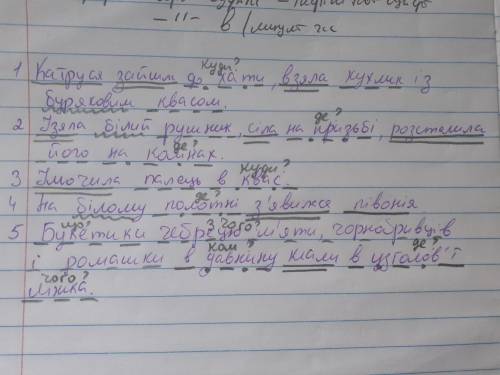 -11- в/минулт час
куди?
1 Катруся зайшла до хати, взяла кухлик із
буряковим квасом.
де?
2 Узяла білий рушник, сіла на призьбі, розстелила
де?
його на колінах.
куди?
3 Умочила палець в квас.
де?
4 На білому полотні з'явилася півонія
що? з чого?
5 Букетики чебрецю, м'яти, чорнобривців
коли? де?
і ромашки в давнину клали в узголов'ї
чого?
ліжка.